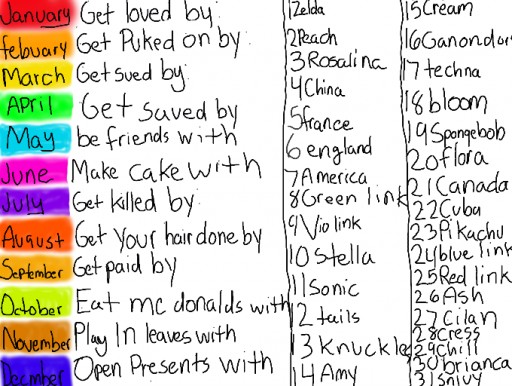 January Get loved by:
febuary Get Puked on by:
March Get sued by:
April Get saved by
May be friends with
June Make cake with
July Get killed by:
August Get your hair done by
September Get paid by
October Eat mc donalds with
November Play In leaves with
Decmber Open Presents with
1 Zelda
2 Peach
3 Rosalina
4 China
5 france
6 england
7 America
8 Green link
9 Vio link
10 Stella
11 Sonic
12 tails
13 Knuckles
14 Amy
15 Cream
16 Ganondor
17 techna
18 bloom
19 Spongebob
20 flora
21 Canada
22 Cuba
23 Pikachu
24 blue link
25 Red link
26 Ash
27 Cilan
28 cress
29 Chill
30 brianca
31 Snivy